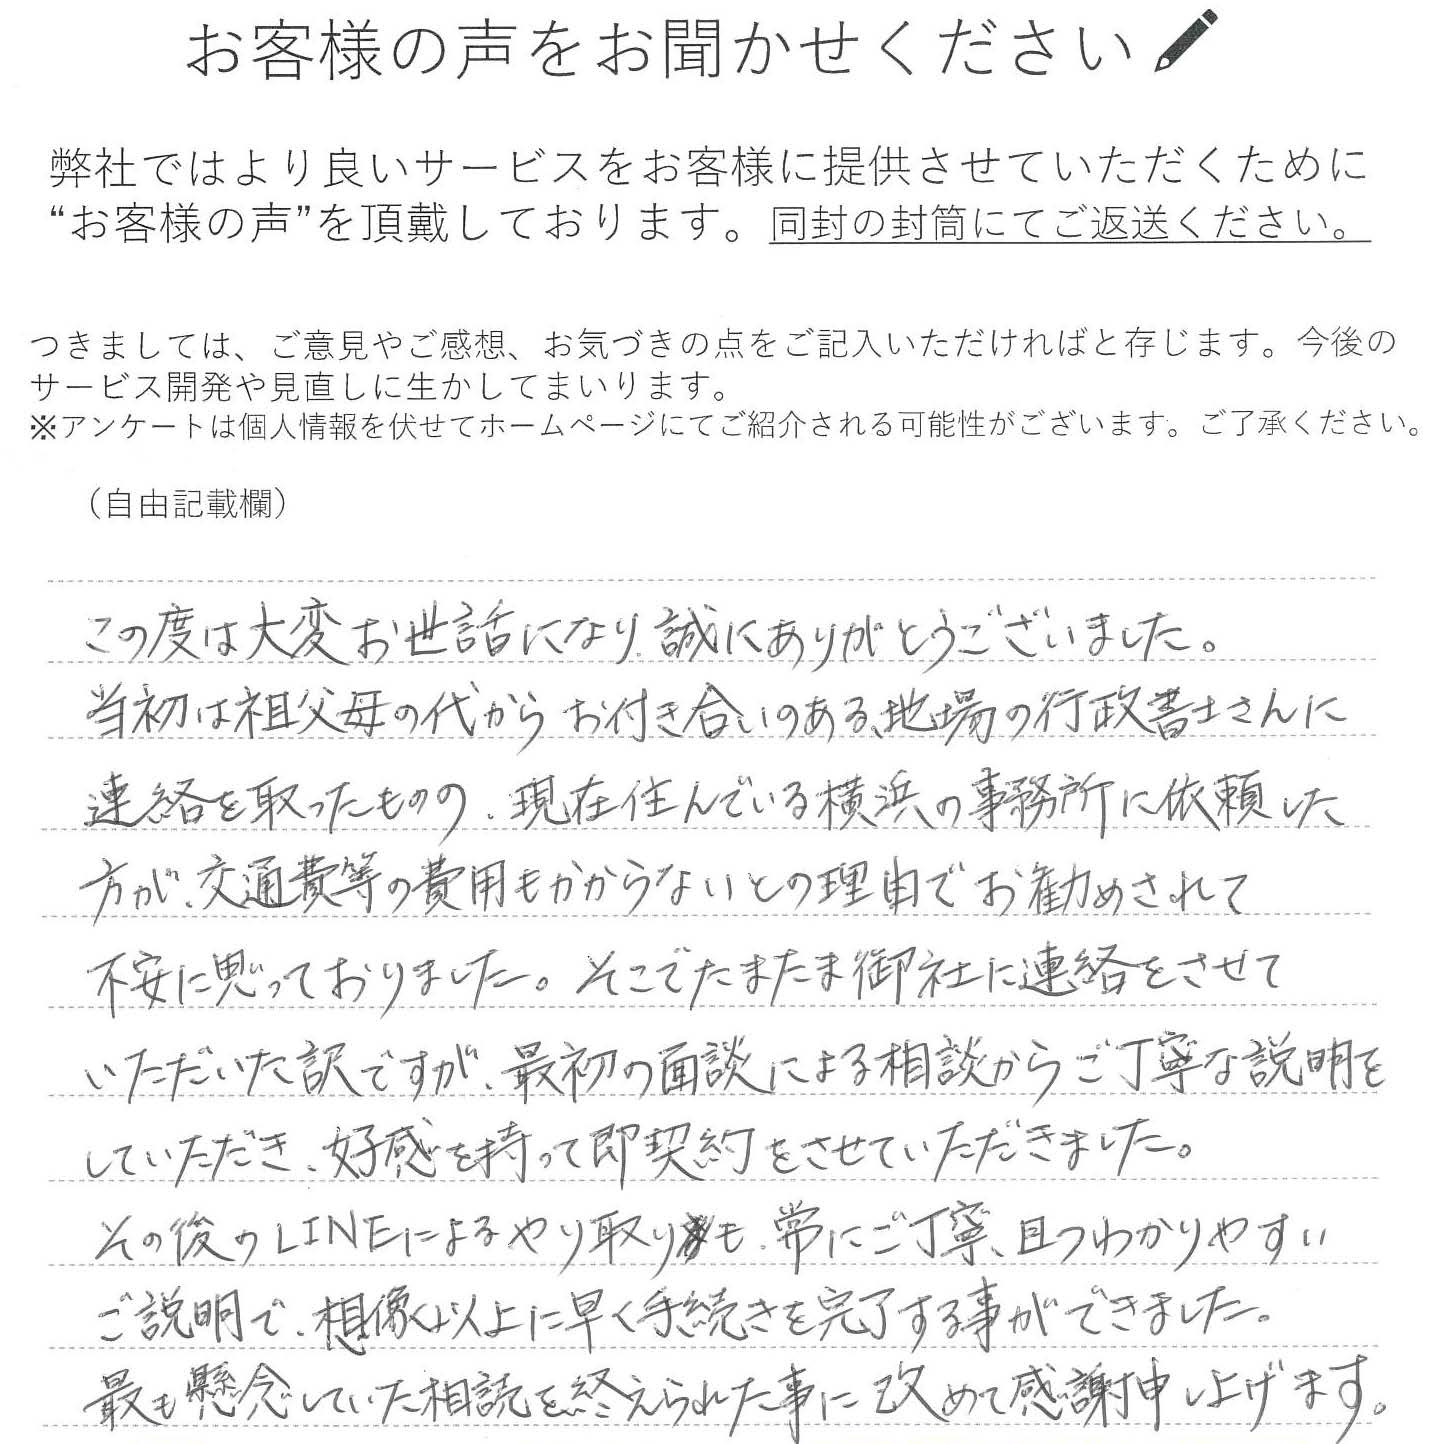 お客様の声をお聞かせください
弊社ではより良いサービスをお客様に提供させていただくために
“お客様の声”を頂戴しております。同封の封筒にてご返送ください。
つきましては、ご意見やご感想、お気づきの点をご記入いただければと存じます。今後の
サービス開発や見直しに生かしてまいります。
※アンケートは個人情報を伏せてホームページにてご紹介される可能性がございます。ご了承ください。
（自由記載欄）
この度は大変お世話になり、誠にありがとうございました。
当初は祖父母の代からお付き合いのある、地場の行政書士さんに
連絡を取ったものの、現在住んでいる横浜の事務所に依頼した
方が、交通費等の費用もかからないとの理由でお勧めされて
不安に思っておりました。そこでたまたま御社に連絡をさせて
いただいた訳ですが、最初の面談による相談からご丁寧な説明を
していただき、好感を持って即契約をさせていただきました。
その後のLINEによるやり取りも、常にご丁寧、且つわかりやすい
ご説明で、想像以上に早く手続きを完了する事ができました。
最も懸念していた相続を終えられた事に改めて感謝申し上げます。